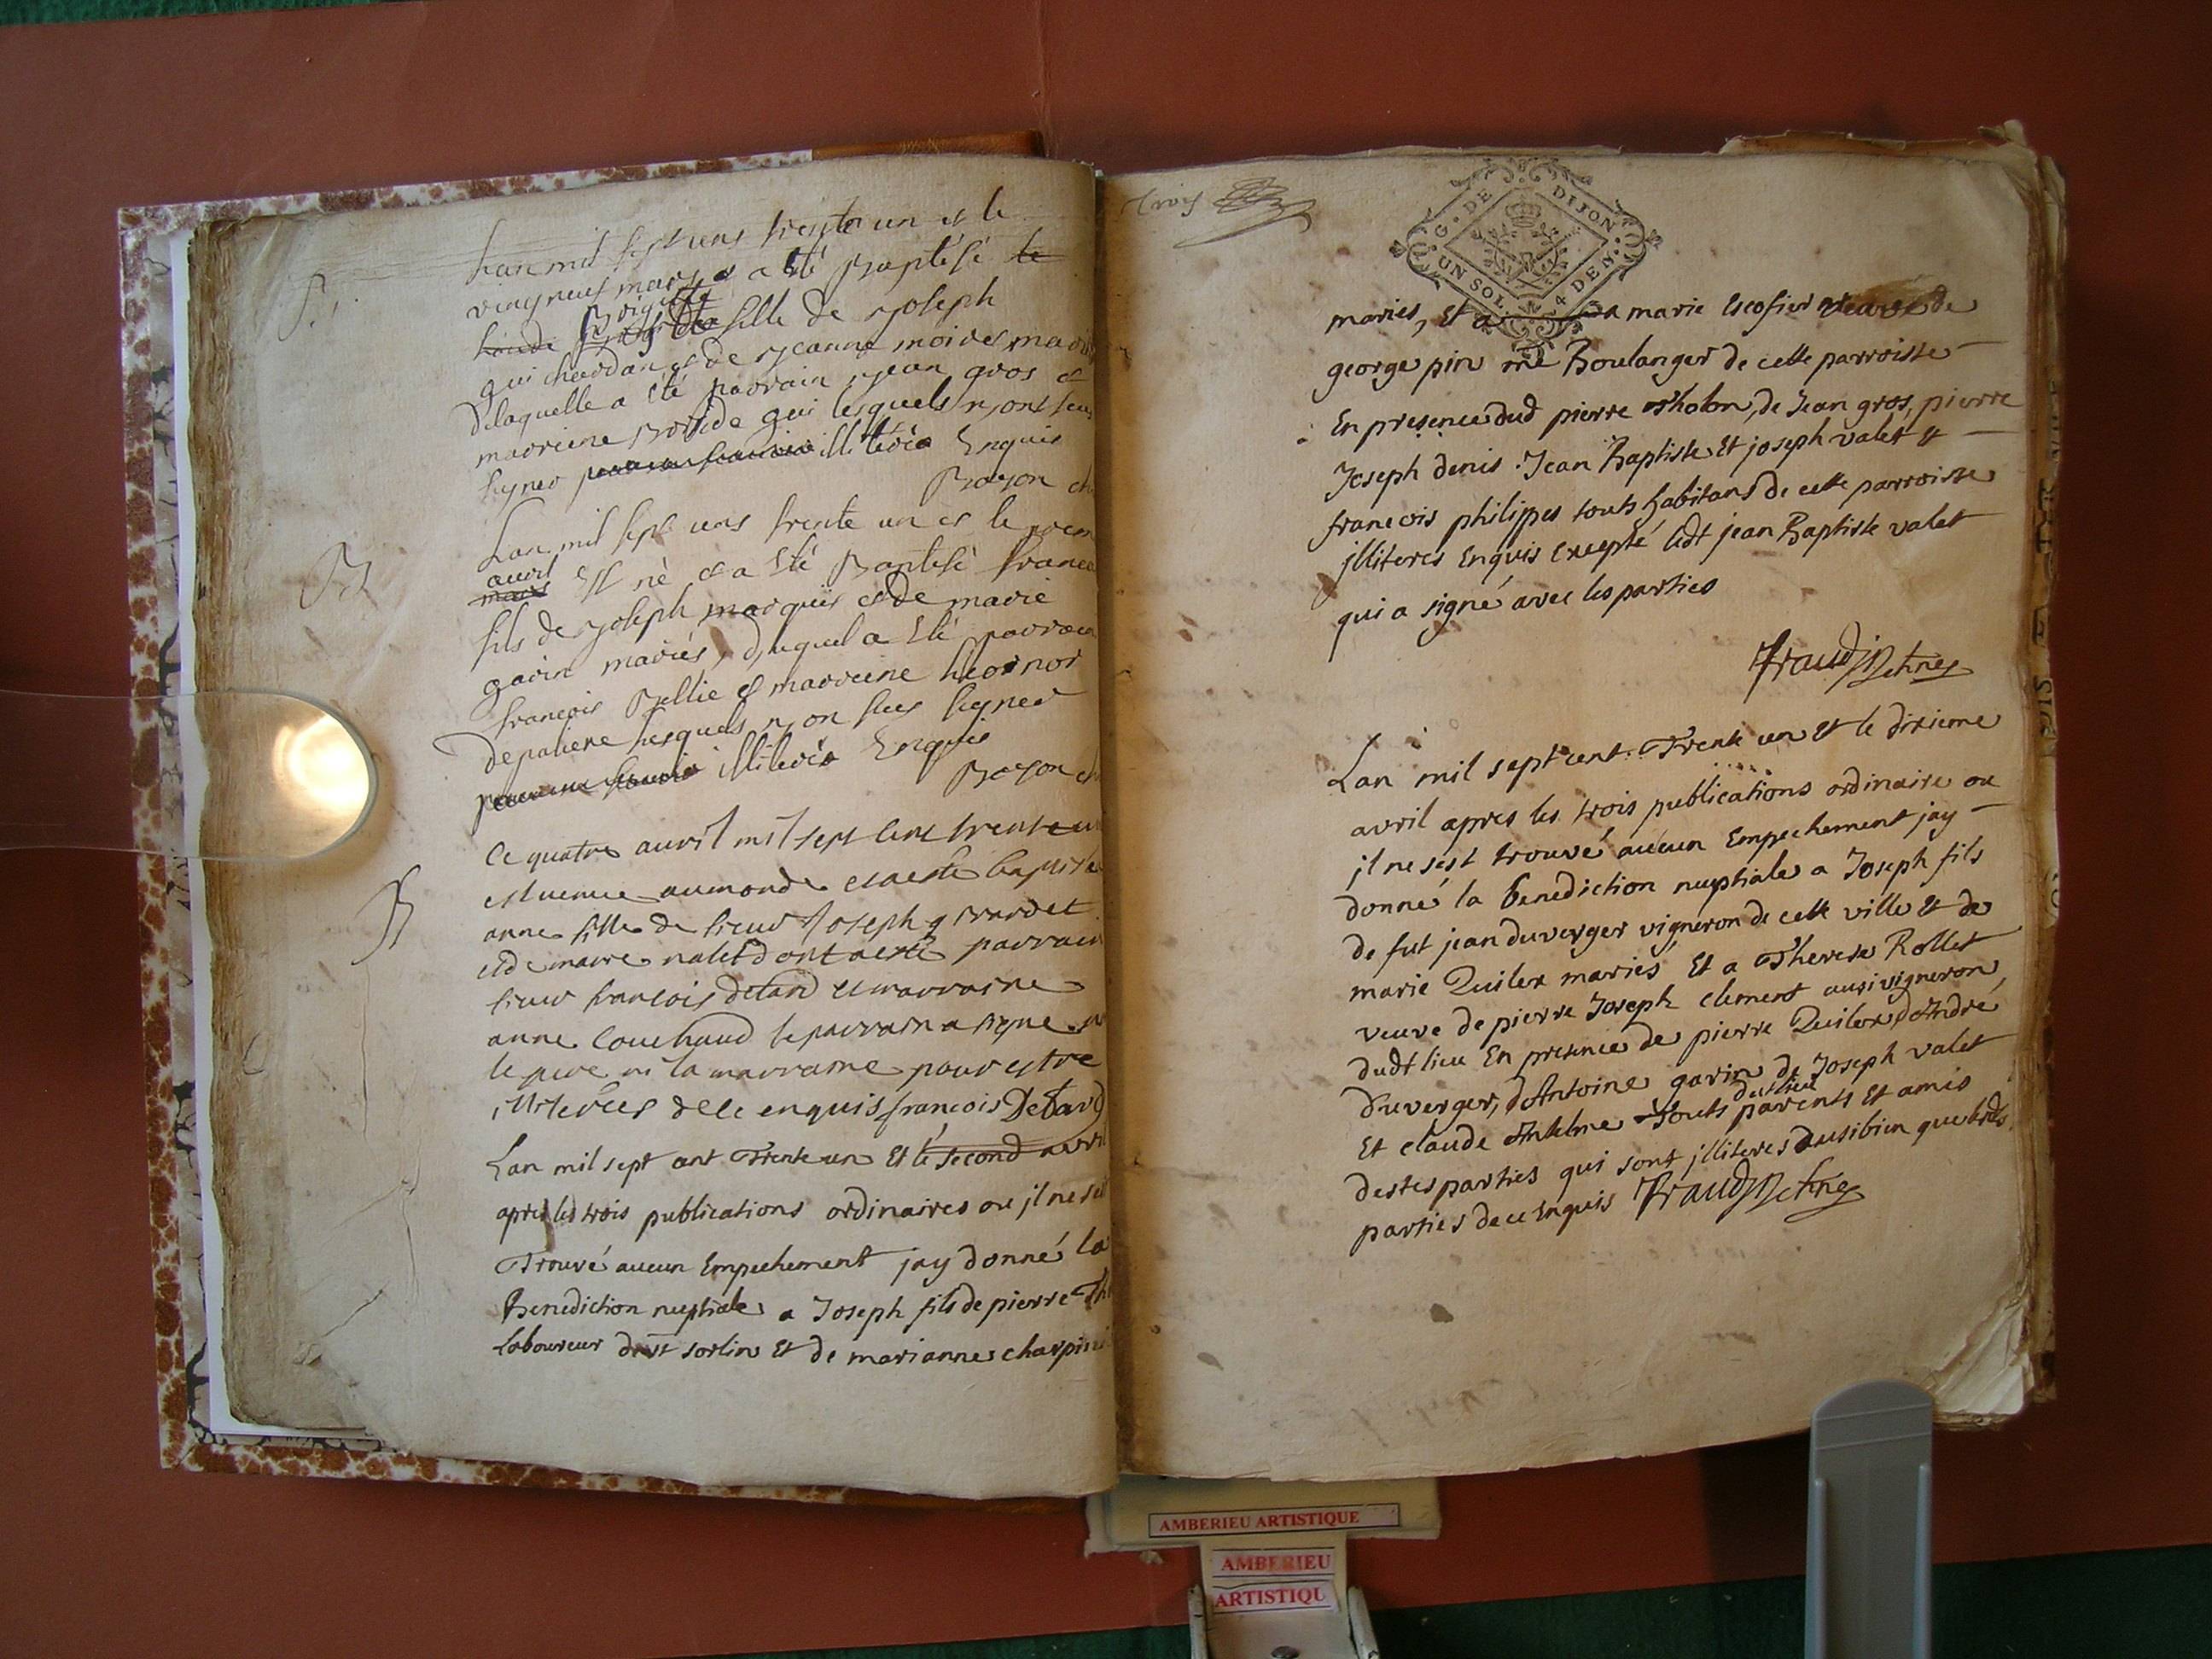 Lan mil sept cens trente un et le
vingt neuf mars a été Baptisé
Brigitte fille de Joseph
guichardan et de Jeanne moines
delaquelle a été parrain Jean gros et
marreine gui lesquels n,ont sceu
signer illiterés Enquis
Bozon
Lan mil sept cens trente un et le prem
avril est né et a été Baptisé francoi
fils de Joseph marquis et de marie
garin mariés, duquel a été parrain
francois Bellie et marreine Leonor
depaliere lesquels n,on sceu signer
illiterés Enquis
Bozon
Ce quatre auvril mil sept cent trente un
est venue aumonde et a esté baptisée
anne fille de sieur Joseph
et de marie valet dont a esté parrain
sieur francois debard et marraine
anne Couchaud le parrain a signe
le pere ni la marraine pour estre
illiterées de ce enquis francois Debard
Lan mil sept cent Trente un Et le second avril
apres les trois publications ordinaires ou il ne sest
Trouvé aucun Empechement jay donné la
Benediction nuptiale a Joseph fils de pierre Th
laboureur de st sorlin Et de marianne charpin
trois
G. DE DIJON
UN SOL 4 DEN.
mariés, Et a marie Escofier veuve de
george pin me Boulanger de cette parroisse
En presence dud pierre Tholon, de Jean gros, pierre
Joseph denis. Jean Baptiste Et joseph valet et
francois philippes touts habitans de cette parroisse
jlliteres Enquis Excepté ledt jean Baptiste valet
qui a signé avec les parties
Lan mil sept cent Trente un Et le dixieme
avril apres les trois publications ordinaire ou
il ne sest trouvé aucun Empechement jay
donné la benediction nuptiale a Joseph fils
de fut jean duverger vigneron de cette ville et de
marie Quilex mariés Et a Therese Rollet
veuve de pierre Joseph Clement ausi vigneron,
dudt lieu En presence de pierre Quilex, d'André
Duverger, d'Antoine garin de Joseph valet
dudt lieu
Et claude Antelme Touts parents Et amis
destes parties qui sont jlliteres ausibien que lesds
parties de ce Enquis
AMBERIEU ARTISTIQUE
AMBERIEU
ARTISTIQU